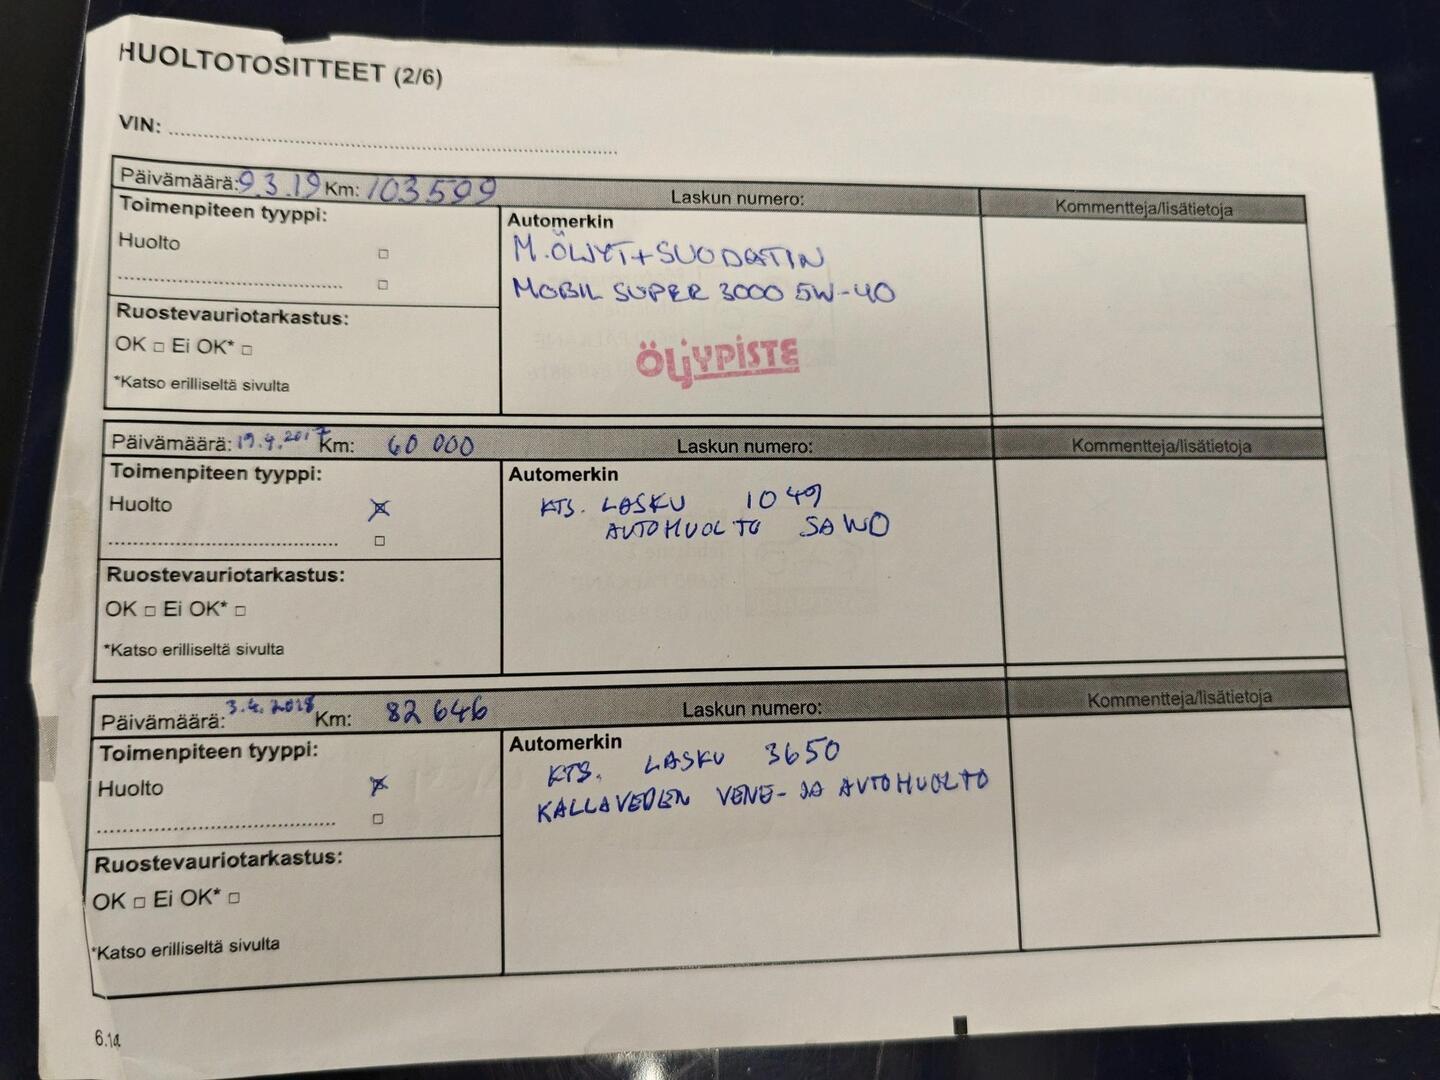 HUOLTOTOSITTEET (2/6)
VIN: ................................................
Päivämäärä: 9.3.19 Km: 103599 Laskun numero: Kommentteja/lisätietoja
Toimenpiteen tyyppi:
Automerkin
Huolto □
M.ÖLJYT+SUODATIN
................................ □
MOBIL SUPER 3000 5W-40
Ruostevauriotarkastus:
OK □ Ei OK* □
ÖljYPiSTE
*Katso erilliseltä sivulta
Päivämäärä: 19.4.2017 Km: 60 000 Laskun numero: Kommentteja/lisätietoja
Toimenpiteen tyyppi:
Automerkin
Huolto ☒
KTS. LASKU 1049
AUTOHUOLTO SAWO
................................ □
Ruostevauriotarkastus:
OK □ Ei OK* □
*Katso erilliseltä sivulta
Päivämäärä: 3.4.2018 Km: 82 646 Laskun numero: Kommentteja/lisätietoja
Toimenpiteen tyyppi:
Automerkin
Huolto ☒
KTS. LASKU 3650
KALLAVEDEN VENE- JA AUTOHUOLTO
................................ □
Ruostevauriotarkastus:
OK □ Ei OK* □
*Katso erilliseltä sivulta